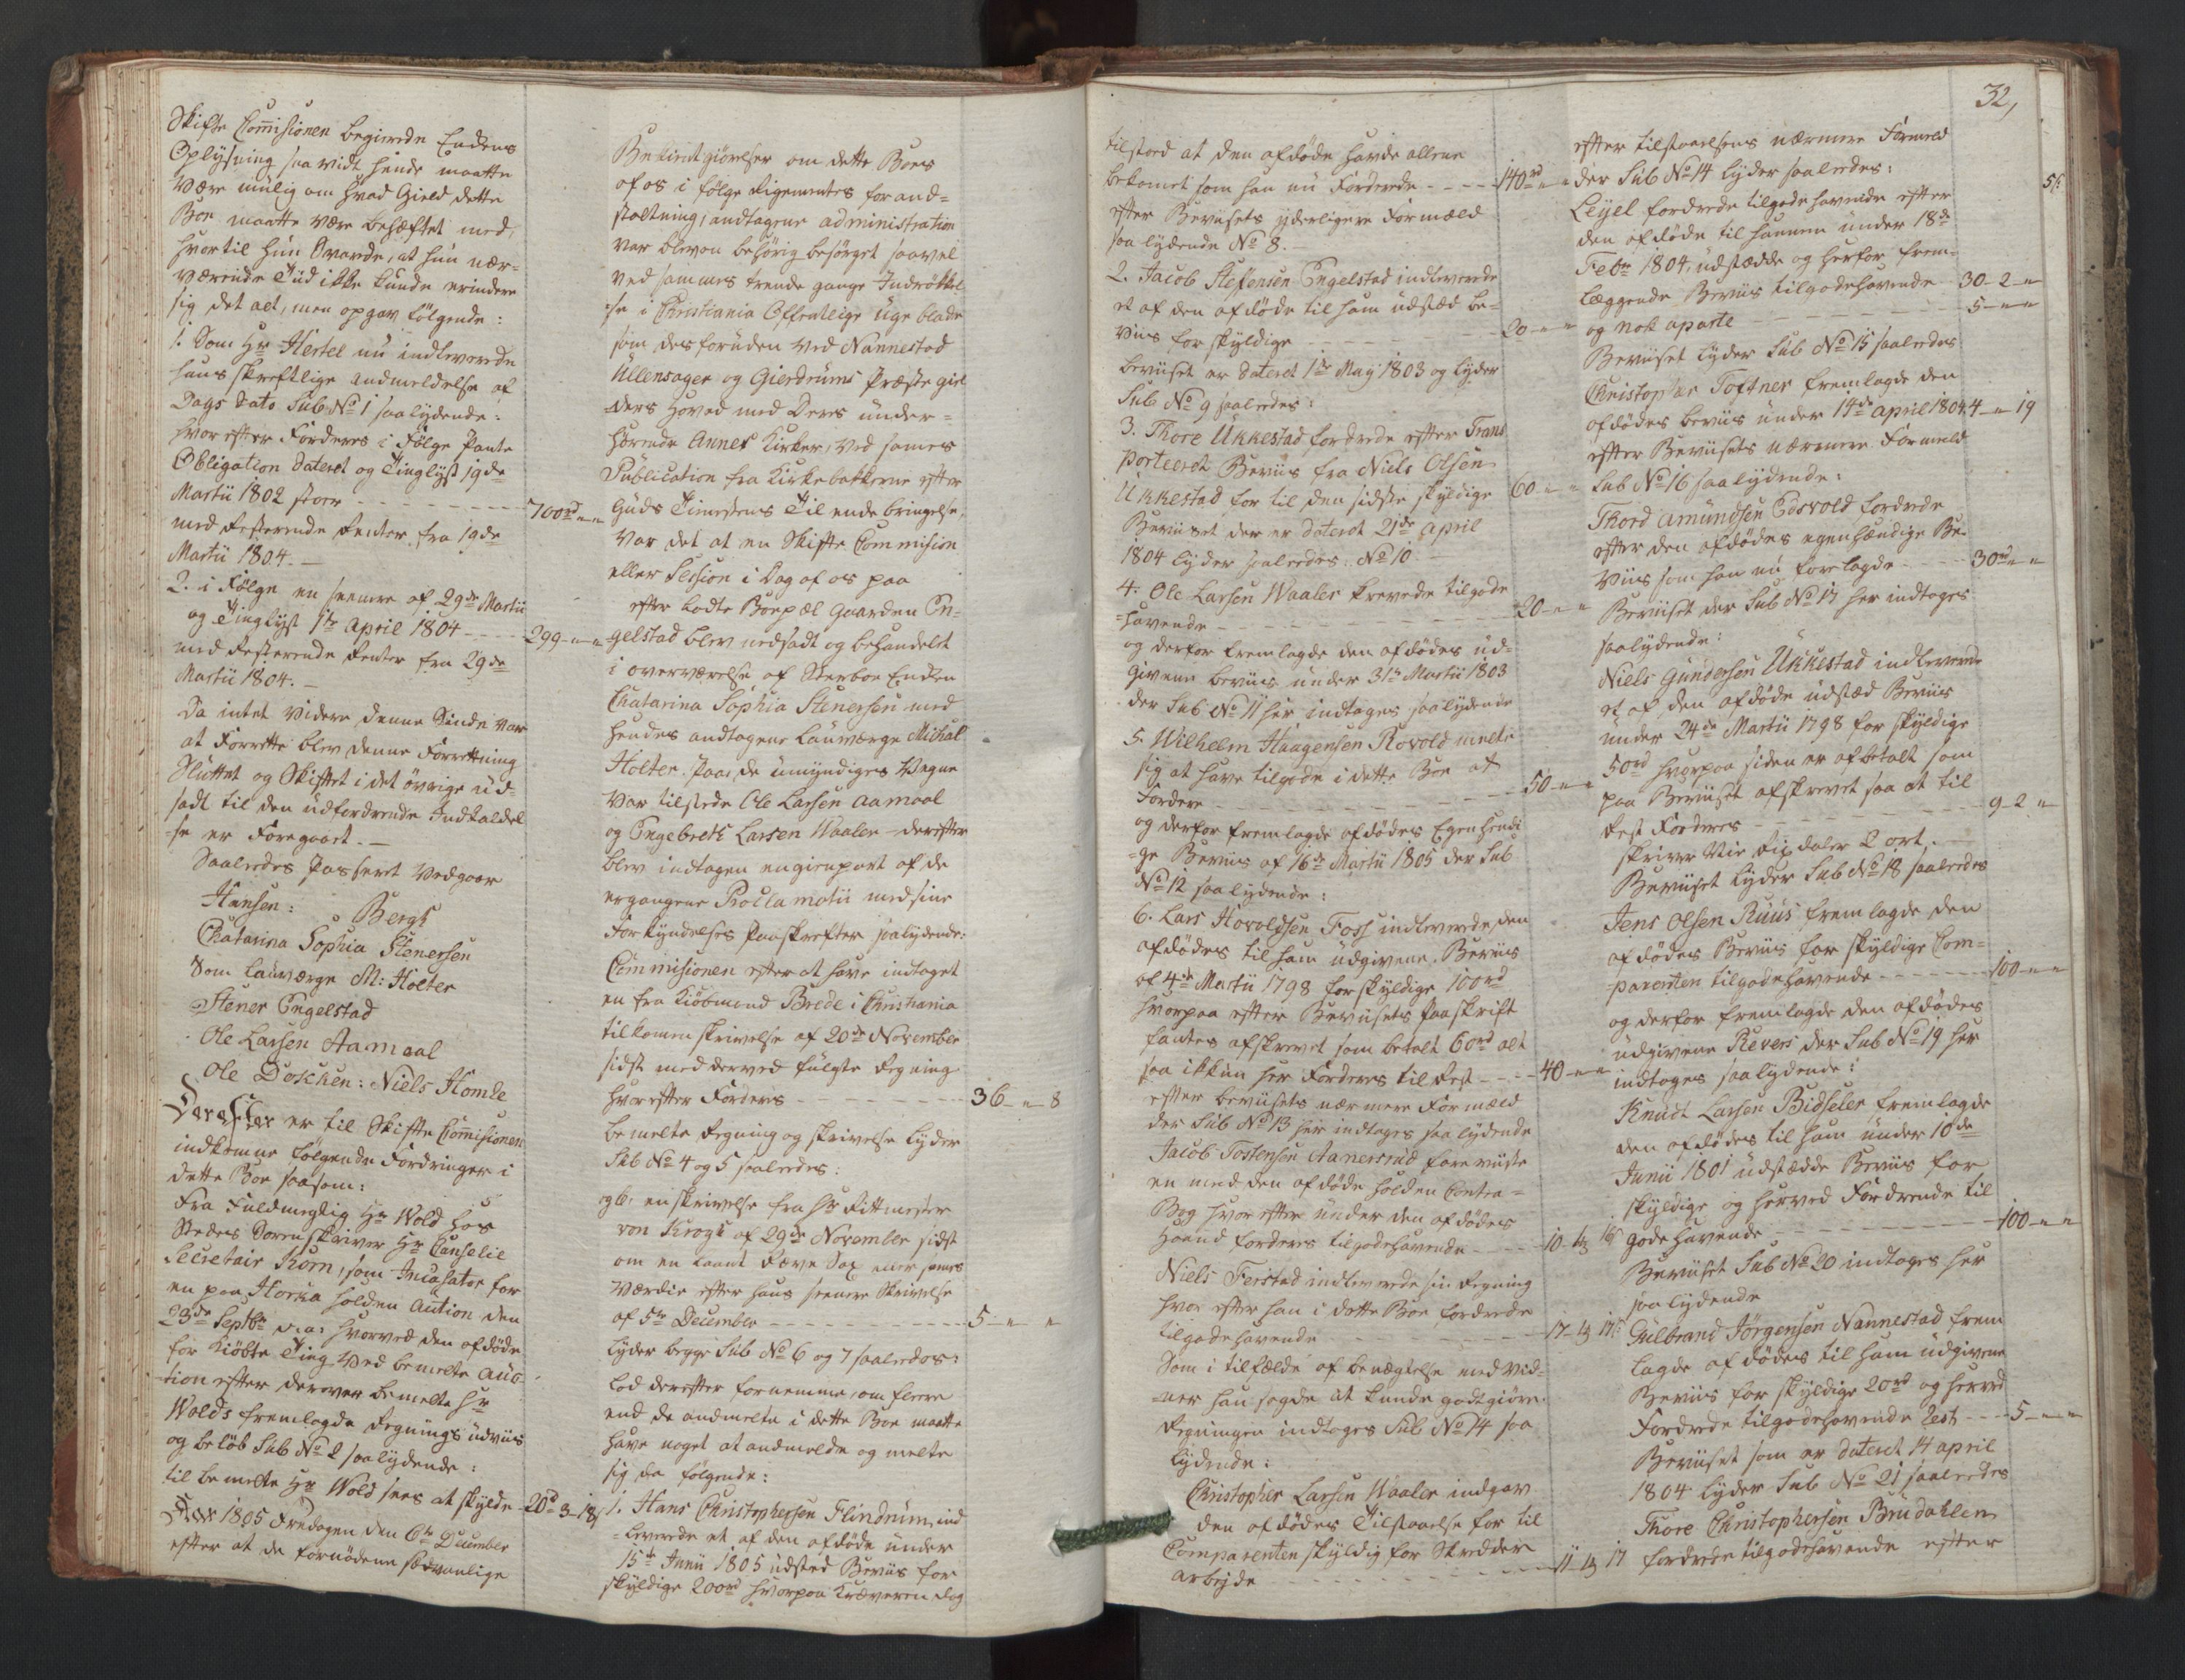 Skifte Commisionen begierede Enkens
Oplysning saa vidt hende maatte
være mülig om hvad Gield dette
Boe maatte være behæftet med,
hvortil hün Svarede, at hün nær-
værende Tiid ikke kunde erindere
sig det alt, men opgav følgende:
1. Som Hr Hertel nu indleverede
hans skriftlige anmeldelse af
Dags dato Sub No 1 saalydende:
hvorefter Fordres i Følge Pante
Obligation dateret og Tinglyst 19de
Martii 1802 stor - - - 700rd " "
med resterende Renter fra 19de
Martii 1804. -
2. i Følge en senere af 29de Martii
og Tinglyst 1te April 1804 - - - 299 - " - "
med resterende Renter fra 29de
Martii 1804. -
Da intet videre denne Sinde var
at Forrette blev denne Forretning
Sluttet og Skiftet i det øvrige ud-
sadt til den udfordrende Indkaldel-
se er Foregaaet. -
Saaledes Passeret Vedgaar
Hansen: Bergh
Chatarina Sophia Stenersen
Som Lauværge M: Holter
Stener Engelstad
Ole Larsen Aamoal
Ole Døschen: Niels Homle
Derefter er til Skifte Commisionen
indkomne følgende Fordringer i
dette Boe saasom:
Fra Fuldmegtig Hr Wold hos
Stedes Sorenskriver Hr Canselie
Secretair Korn, som Incasator for
en paa Horka holden Aution den
23de Septbr d. a: hvorved den afdøde
for kiøbte Ting Ved bemelte Auc-
tion efter derover bemelte Hr
Wolds fremlagde Regnings udviis
og beløb Sub No 2 saalydende:
til bemelte Hr Wold sees at skylde - 20rd 3 - 18
Aar 1805 Fredagen den 6te December
efter at de fornødene sædvanlige
Bekiendtgiørelser om dette Boes
af os i følge Regimentes foran-
staltning, andtagne administration
var bleven behørig besørget saavel
ved sammes trende gange Indrøkkel-
se i Christiania Offentlige Uge blade
som desforuden ved Nannestad
Ullensager og Gierdrums Præste giel
ders Hoved med Deres under-
hørende Annex Kirker, ved sames
Publication fra Kirkebakkerne efter
Guds Tienestens Til ende bringelse,
Var det at en Skifte Commision
eller Session i Dag af os paa
efterladte Boepæl gaarden En-
gelstad blev nedsadt og behandelt
i overværelse af Sterboe Enken
Chatarina Sophia Stenersen med
hendes andtagne Lauværge Michal
Holter. Paa de umyndiges Vegne
Var tilstede Ole Larsen Aamoal
og Engebreth Larsen Waaler - derefter
blev indtagen en gienpart af de
ergangne Procla matii med sine
Forkyndelses Paaskrefter saalydende:
Commisionen efter at have indtaget
en fra Kiøbmand Brede i Christiania
tilkomen skrivelse af 20de November
sidst med derved fulgte Regning
hvorefter Fordres - - - 36 - " - 8
bemelte Regning og skrivelse lyder
Sub No 4 og 5 saaledes:
og lb: en skrivelse fra Hr Ritmester
von Krogh af 29de November sidst
om en laant Ræve Sax eller sames
Værdie efter hans senere Skrivelse
af 5te December - - - 5 - " - "
lyder begge Sub No 6 og 7 saaledes:
lod derefter fornemme, om flere
end de andmelte i dette Boe maatte
have noget at andmelde og melte
sig da følgende:
1. Hans Christophersen Flindrum, ind
leverede et af den afdøde under
15de Junii 1805 udsted Beviis for
skyldige 200rd hvorpaa Kræveren dog
32,
tilstoed at den afdøde havde allene
bekomet som han nu Fordrede - - - 140rd " "
efter Beviisets yderligere Formæld
saa lydende No 8. -
2. Jacob Steffensen Engelstad indleverede
et af den afdøde til ham udstæd be-
viis for skyldige - - - 20 - " - "
beviiset er dateret 1te May 1803 og lyder
Sub No 9 saaledes:
3. Thore Ukkestad fordrede efter Trans
porteret Beviis fra Niels Olsen
Ukkestad for til den sidste skyldige 60 - " - "
Beviiset der er dateret 21de April
1804 lyder saaledes: No 10
4. Ole Larsen Waaler krevede tilgode
havende - - - 20 - " - "
og derfor fremlagde den afdødes ud-
givene beviis under 31te Martii 1803
der Sub No 11 her indtages saalydende
5. Wilhelm Haagensen Rovold melte
sig at have tilgode i dette Boe at
Fordre - - - 50 - " - "
og derfor fremlagde afdødes Egenhendi-
ge Beviis af 16de Martii 1805 der Sub
No 12 saalydende:
6. Lars Haroldsen Foss indleverede, den
afdødes til ham udgivene Beviis
af 4de Martii 1798 for skyldige 100rd
hvorpaa efter Beviisets paaskrift
fantes afskrevet som betalt 60rd alt
saa ikkun her Fordres til Rest - - - 40 - " - "
efter beviisets nærmere Formæld
der Sub No 13 her indtages saalydende
Jacob Tostensen Aanerrud foreviiste
en med den afdøde holden Contra-
Bog hvorefter under den afdødes
Haand fordres tilgodehavende - - - 10 - 1/3 16
Niels Ferstad indleverede sin Regning
hvor efter han i dette Boe fordrede
tilgodehavende - - - 17 - 1/3 17
Som i tilfælde af benægtelse med Vid-
ner han sagde at kunde godtgiøre.
Regningen indtages Sub No 14 saa
lydende:
Christopher Larsen Waaler indgav
den afdødes Tilstaaelse for til
Comparenten skyldig for Skredder
arbejde - - - 11 - 1/3 17
efter tilstaaelsens nærmere Formeld
der Sub No 14 lyder saaledes:
Leyel fordrede tilgodehavende efter
den afdøde til hannem under 18de
Febr 1804, udstædde og herfor frem-
læggende Beviis tilgodehavende 30 - 2 - "
og nok aparte - - - 5 - " - "
Beviiset lyder Sub No 15 saaledes
Christopher Toftner fremlagde den
afdødes beviis under 14de april 1804. 4 - " 19
efter Beviisets nærmere Formeld
Sub No 16 saalydende:
Thord Amundsen Edsvold fordrede
efter den afdødes egenhændige Be-
viis som han nu forelagde - - - 30rd " "
Beviiset der Sub No 17 her indtages
saalydende:
Niels Gundersen Ukkestad indleverede
et af den afdøde udstæd Beviis
under 24de Martii 1798 for skyldige
50rd hvorpaa siden er afbetalt som
paa Beviiset afskrevet saa at til
Rest Fordres - - - 9 - 2 "
skriver Nie Rixdaler 2 ort. -
Beviiset lyder Sub No 18 saaledes
Jens Olsen Ruus fremlagde den
afdødes Beviis for skyldige Com-
parenten tilgodehavende - - - 100 - " - "
og derfor fremlagde den afdødes
udgivene Revers der Sub No 19 her
indtages saalydende:
Knudt Larsen Bidseler fremlagde
den afdødes til ham under 10de
Junii 1801 udstædde Beviis for
skyldige og herved Fordrende til
gode havende - - - 100 - " - "
Beviiset Sub No 20 indtages her
saalydende
Gulbrand Jörgensen Nannestad frem
lagde afdødes til ham udgivene
Beviis for skyldige 20rd og herved
Fordrede tilgodehavende Rest - - - 5 - " - "
Beviiset som er dateret 14 april
1804 lyder Sub No 21 saaledes
Thore Christophersen Brudahlen
fordrede tilgodehavende efter